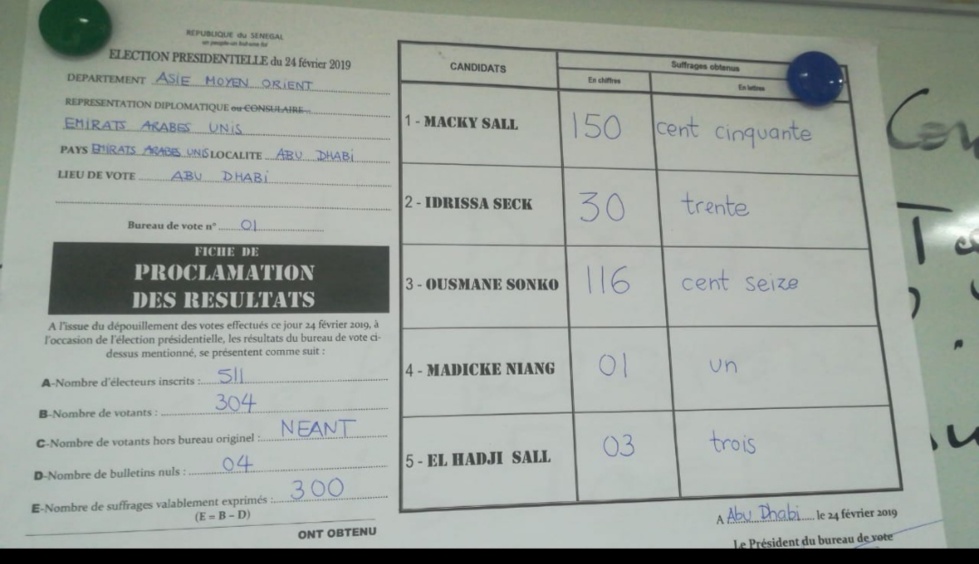 REPUBLIQUE du SENEGAL
un peuple-un but-une foi
ELECTION PRESIDENTIELLE du 24 février 2019
DEPARTEMENT ASIE MOYEN ORIENT
REPRESENTATION DIPLOMATIQUE ou CONSULAIRE
EMIRATS ARABES UNIS
PAYS EMIRATS ARABES UNIS LOCALITE ABU DHABI
LIEU DE VOTE ABU DHABI
Bureau de vote n° 01
FICHE DE
PROCLAMATION
DES RESULTATS
A l'issue du dépouillement des votes effectués ce jour 24 février 2019, à
l'occasion de l'élection présidentielle, les résultats du bureau de vote ci-
dessus mentionné, se présentent comme suit :
A-Nombre d'électeurs inscrits : 511
B-Nombre de votants : 304
C-Nombre de votants hors bureau originel : NEANT
D-Nombre de bulletins nuls : 04
E-Nombre de suffrages valablement exprimés : 300
(E = B – D)
ONT OBTENU
CANDIDATS
Suffrages obtenus
En chiffres
En lettres
1 - MACKY SALL 150 cent cinquante
2 - IDRISSA SECK 30 trente
3 - OUSMANE SONKO 116 cent seize
4 - MADICKE NIANG 01 un
5 - EL HADJI SALL 03 trois
A Abu Dhabi le 24 février 2019
Le Président du bureau de vote